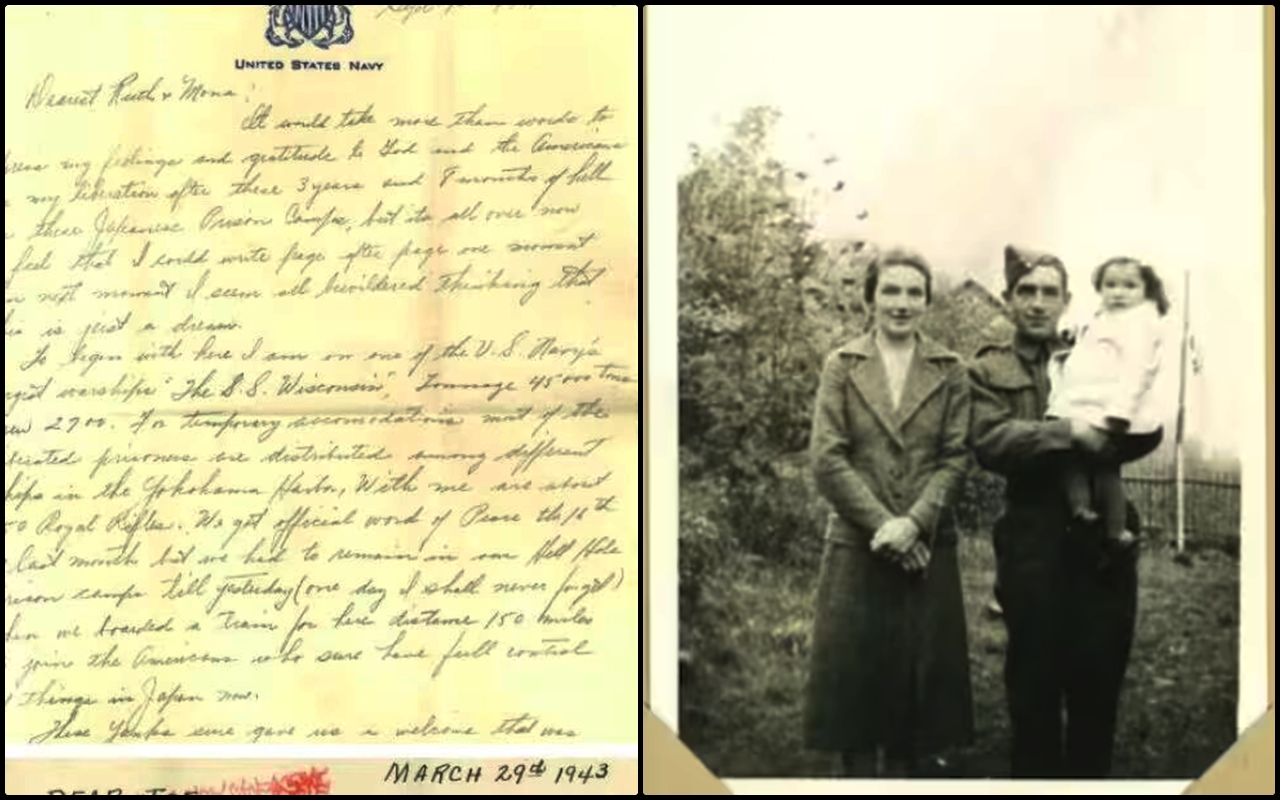 UNITED STATES NAVY
Dearest Ruth & Mona:
It would take more than words to
my feelings and gratitude to God and the Americans
my liberation after these 3 years and 8 months of hell
these Japanese Prison Camps, but its all over now
feel that I could write page after page one moment
next moment I seem all bewildered thinking that
is just a dream.
To begin with here I am on one of the U.S. Navy's
warships "The S.S. Wisconsin", Tonnage 45000 tons
2700. For temporary accomodations most of the
prisoners are distributed among different
in the Yokohama Harbor, With me are about
Royal Rifles. We got official word of Peace the 16th
last month but we had to remain in our Hell Hole
camps till yesterday (one day I shall never forget)
we boarded a train for here distance 150 miles
join the Americans who sure have full control
things in Japan now.
These Yanks sure gave us a welcome that was
MARCH 29th 1943
DEAR